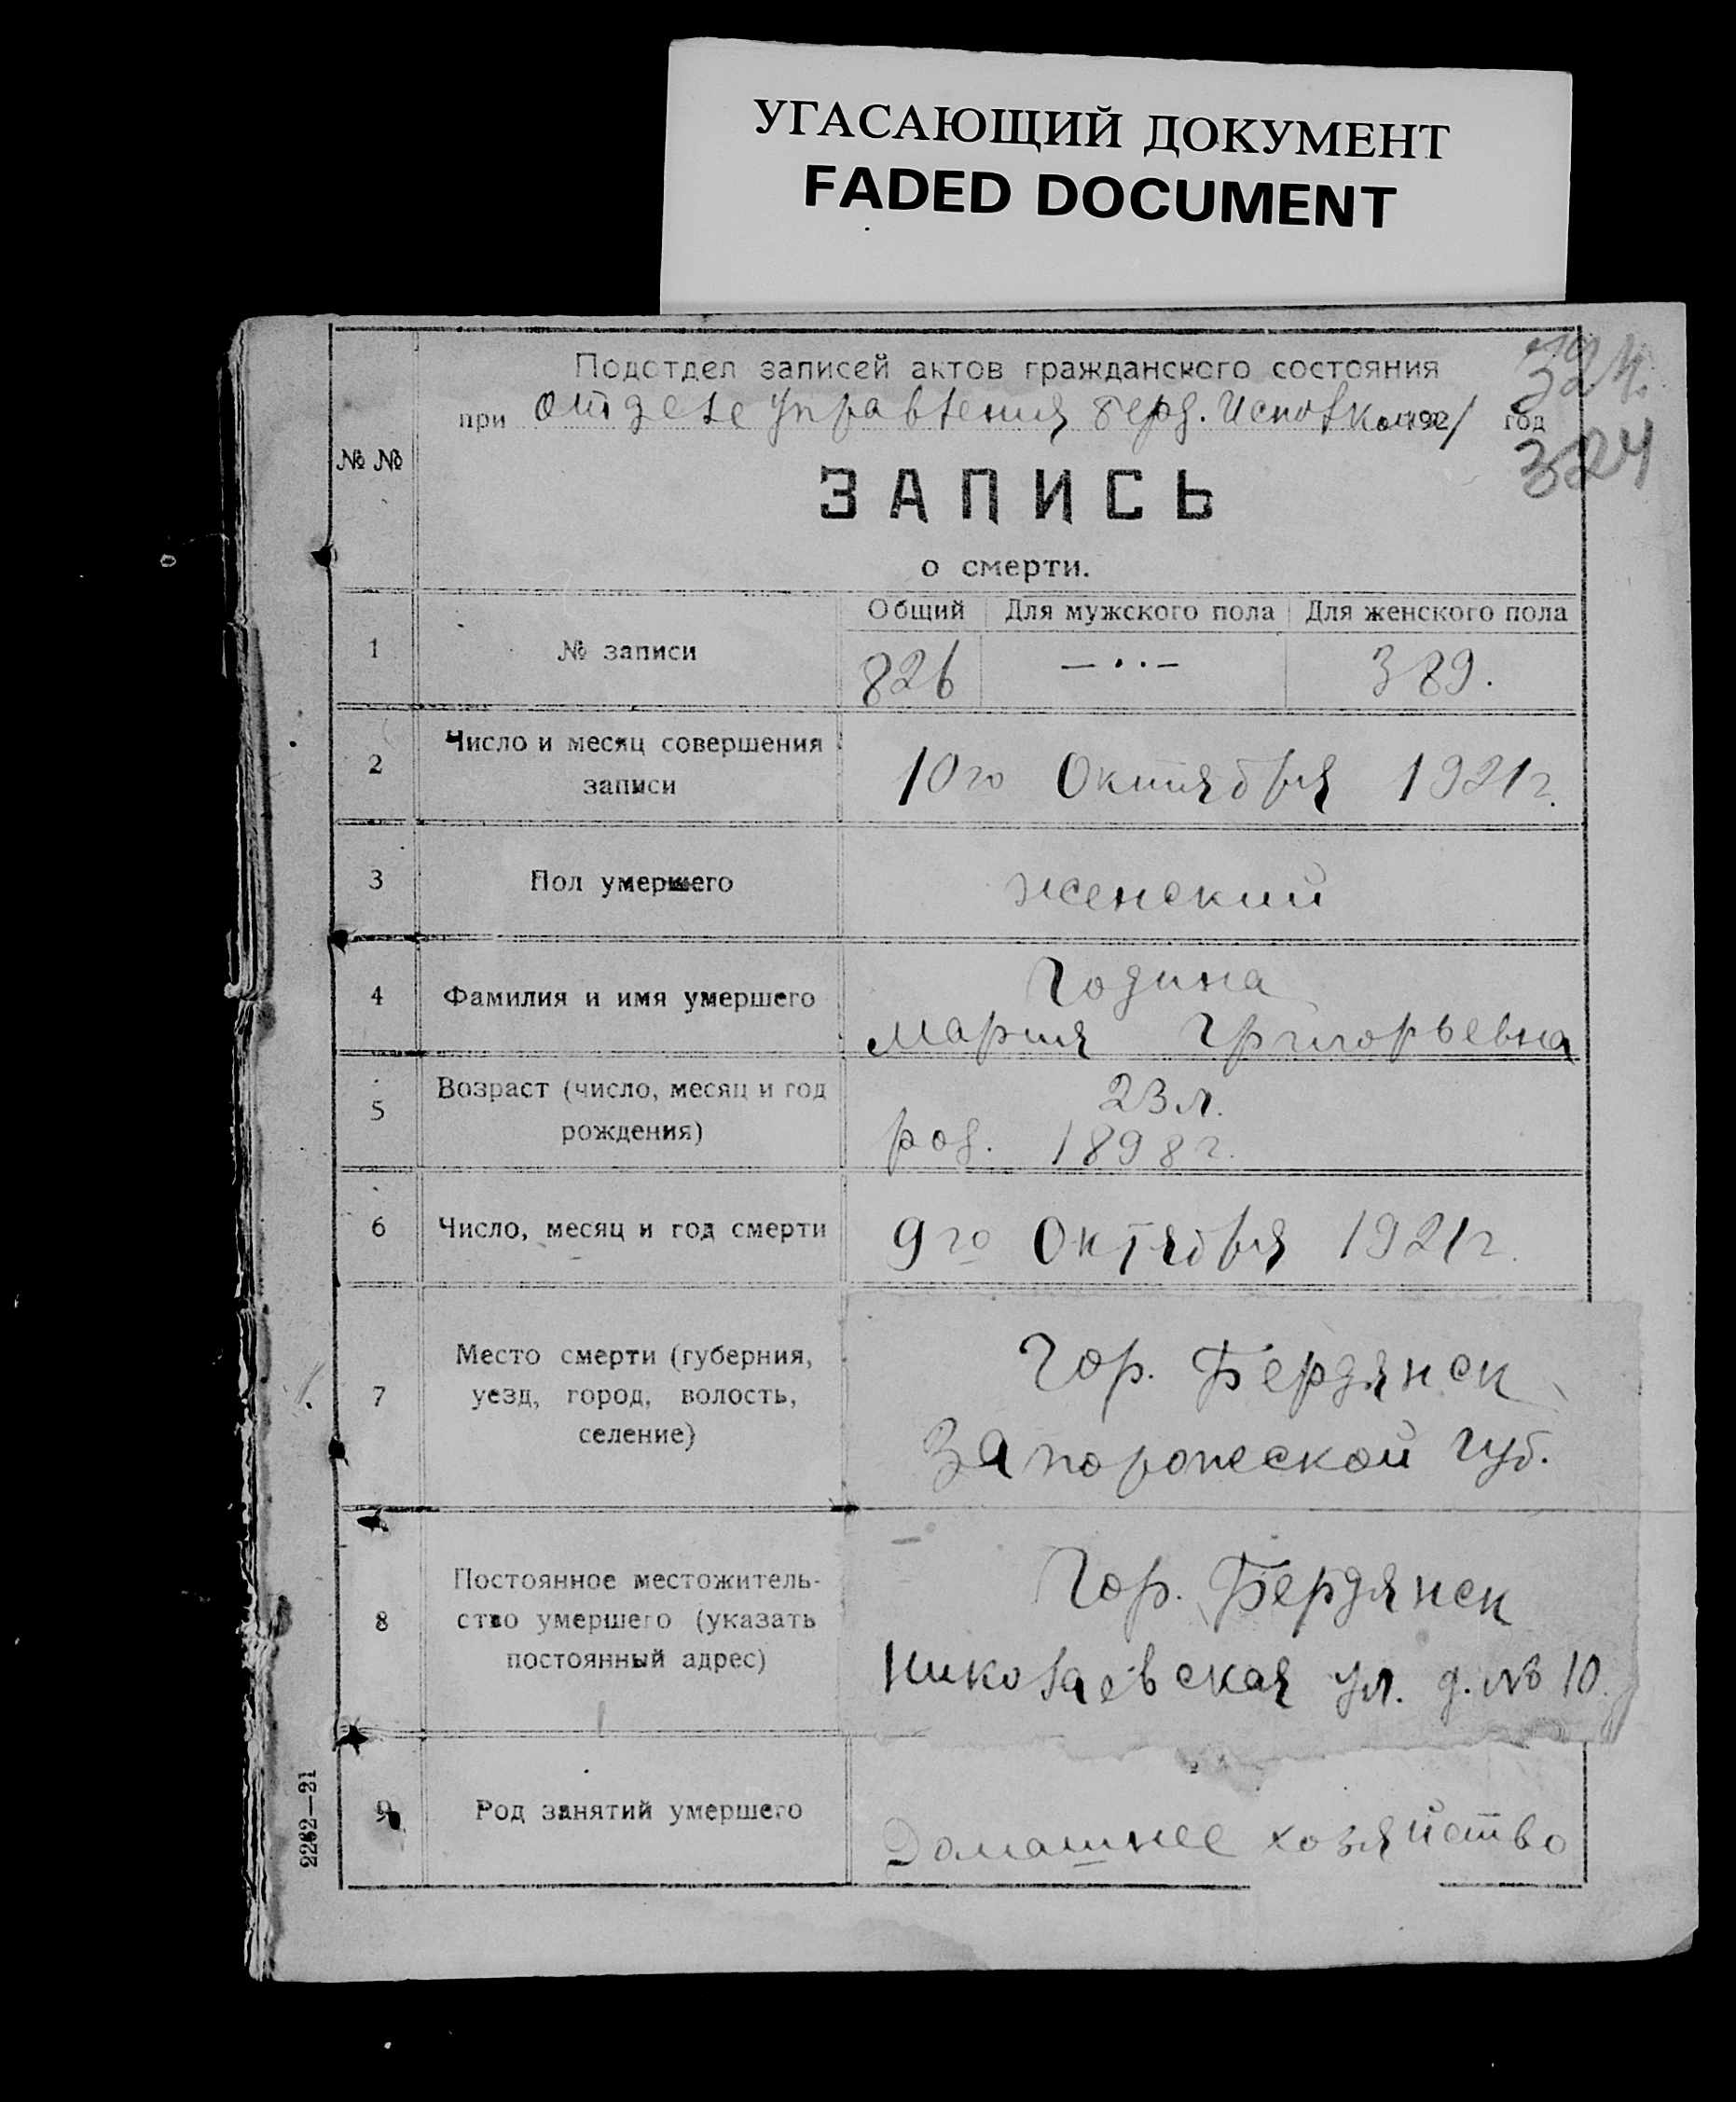 УГАСАЮЩИЙ ДОКУМЕНТ
FADED DOCUMENT
Подотдел записей актов гражданского состояния
324.
при отделе управления берд. Исполкома 1921 год
324
№ №
ЗАПИСЬ
о смерти.
Общий Для мужского пола Для женского пола
1 № записи 826 — · · — 389.
2 Число и месяц совершения
записи
10го Октября 1921г.
3 Пол умершего женский
4 Фамилия и имя умершего
Година
Мария Григорьевна
5 Возраст (число, месяц и год
рождения)
23 л.
род. 1898 г.
6 Число, месяц и год смерти 9го Октября 1921г.
7 Место смерти (губерния,
уезд, город, волость,
селение)
Гор. Бердянск
Запорожской губ.
8 Постоянное местожитель-
ство умершего (указать
постоянный адрес)
Гор. Бердянск
Николаевская ул. д. № 10.
9 Род занятий умершего Домашнее хозяйство
2262—21